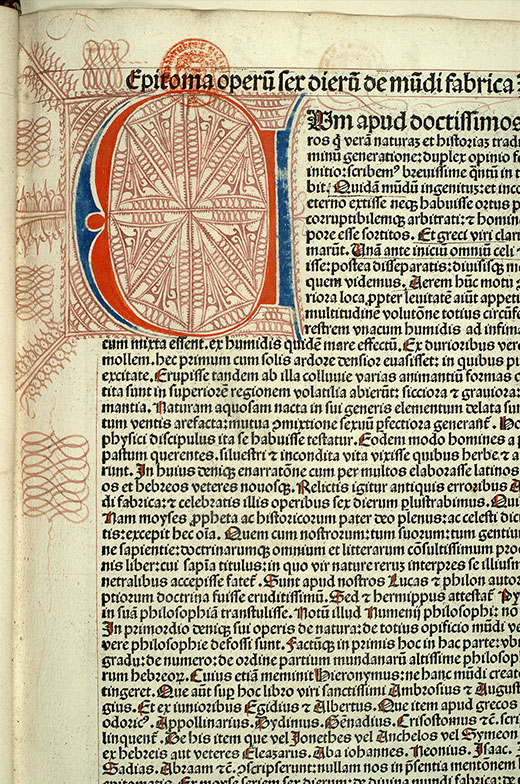 Epitoma operū sex dierū de mūdi fabrica
CUm apud doctissimos
ros q̄ verā naturā et historiā tradi
minū generatione: duplex opinio f
initio: scribem⁹ brevissime qntū in t
bit. Quidā mūdū ingenitur et inco
eterno extisse neqz habuisse ortus p
corruptibilemqz arbitrati: et homin
pore esse sortitos. Et greci viri clari
marūt. Unā ante iniciū omniū celi
isse: postea disseparatis: diuisisqz m
quem videmus. Aerem hūc motu
riora loca, ppter leuitatē aiūt appeti
multitudinē volutōne totius circūf
restrem vnacum humidis ad infima
cum mixta essent. ex humidis quidē mare effectū. Ex durioribus vero
mollem. hec primum cum solis ardore densior euasisset: in quibus
excitate. Erupisse tandem ab illa colluuie varias animantiū formas
tita sunt in superiorē regionem volatilia abierūt: sicciora et grauiora
mantia. Naturam aquosam nacta in sui generis elementum delata sūt
tum ventis arefacta: mutua ɔmixtione sexuū pfectiora generasſ. Ho
physici discipulus ita se habuisse testatur. Eodem modo homines a p
pastum querentes. siluestri et incondita vita vixisse quibus herbe et a
runt. In huius deniqz enarratōne cum per multos elaborasse latinos
os et hebreos veteres nouosqz. Relictis igitur antiquis erroribus
di fabrica: et celebratis illis operibus sex dierum plustrabimus. Qui
Nam moyses, ppheta ac historicorum pater deo plenus: ac celesti
tis: excepit hec oīa. Quem cum nostrorum: tum suorum: tum gentiū
ne sapientie: doctrinarumqz omnium et litterarum cōsultissimum pro
nis liber: cui sapīa titulus: in quo vir nature rerum interpres se illius
netralibus accepisse fateſ. Sunt apud nostros Lucas et philon autor
ptiorum doctrina fuisse eruditissimū. Sed et hermippus attestaſ Py
in suā philosophiā transtulisse. Notū illud Numenij philosophi: nō
In primordio deniqz sui operis de natura: de totius opificio mūdi ve
vere philosophie defossi sunt. Factūqz in primis hoc in hac parte: vt
gradu: de numero: de ordine partium mundanarū altissime philosoph
rum hebreor. Cuius etiā meminit Hieronymus: ne hanc mūdi creat
tingeret. Que aūt sup hoc libro viri sanctissimi Ambrosius et August
gius. Et ex iunioribus Egidius et Albertus. Que item apud grecos
odoric⁹. Appollinarius. Dydimus. Genadius. Crisostomus et c̄. scri
linquent. De his item que vel Jonethes vel Anchelos vel Symeon
ex hebreis aut veteres Eleasarus. Aba iohannes. Neonius. Isaac.
Gadias. Abraam et c̄. ɔscripserunt: nullam nos in psentia mentionem